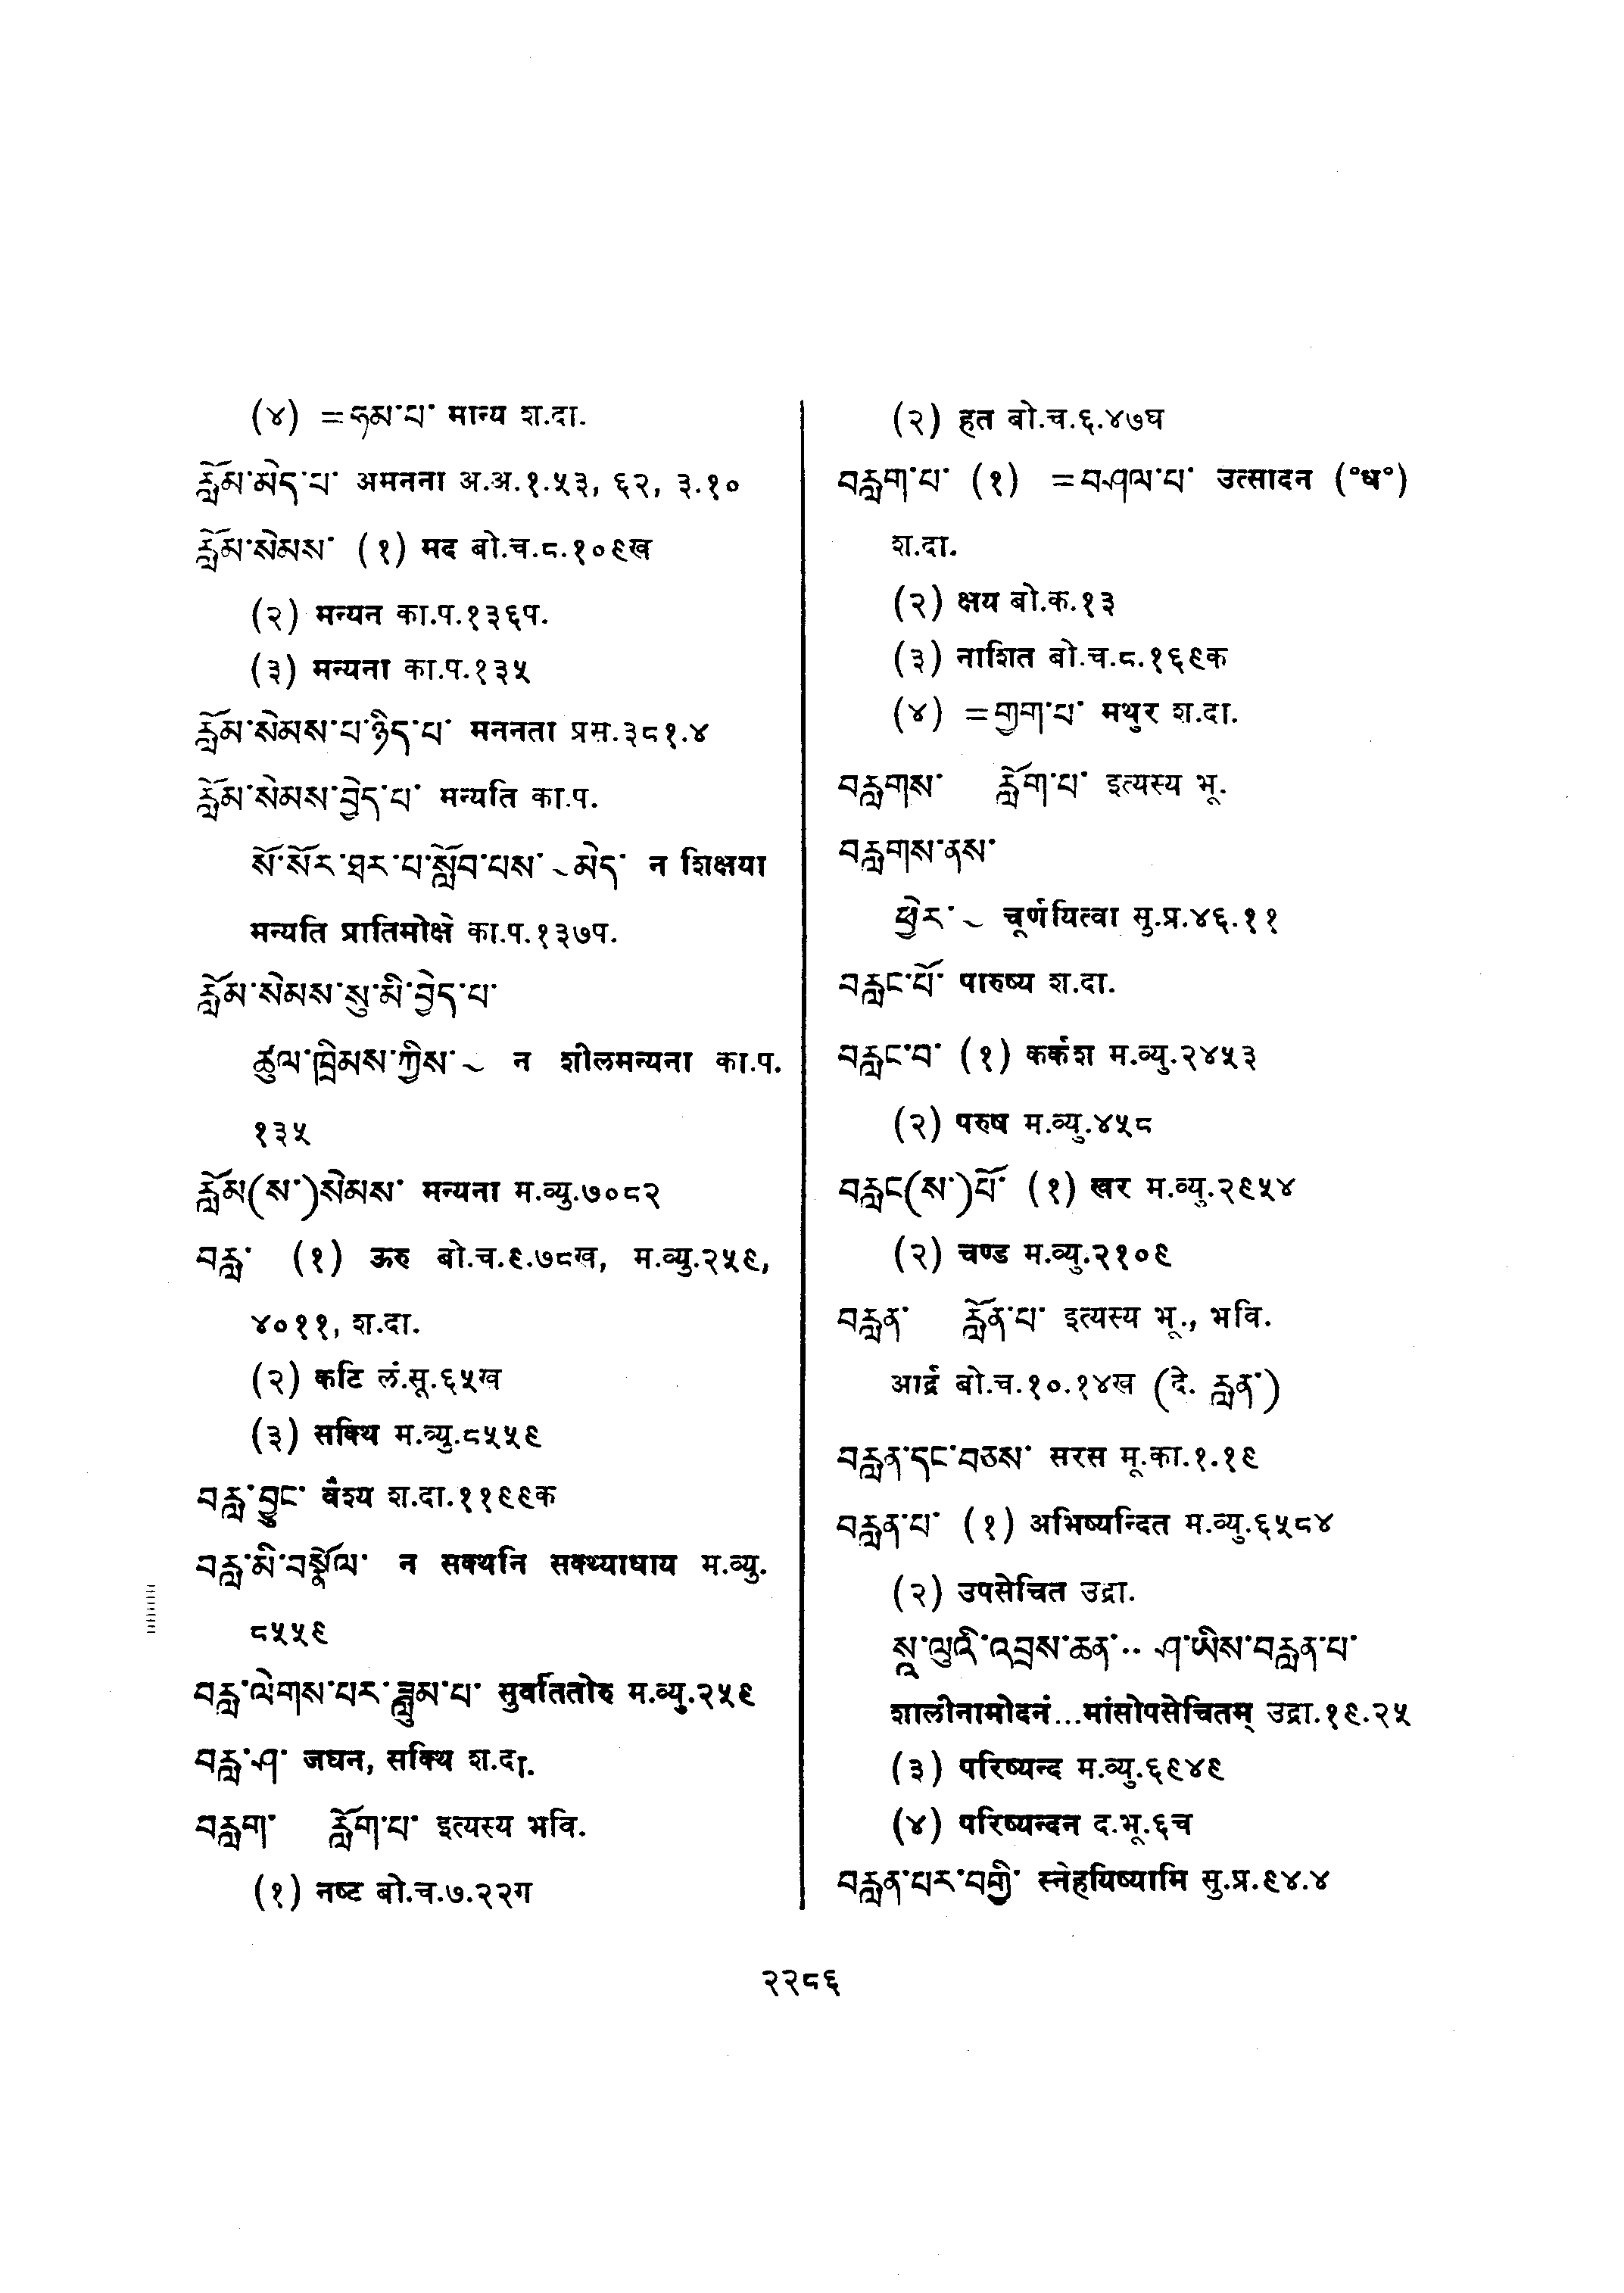 (४) =ཧམ་པ་ मान्य श.दा.
རློམ་མེད་པ་ अमनना अ.अ.१.५३, ६२, ३.१०
རློམ་སེམས་ (१) मद बो.च.८.१०९ख
(२) मन्यन का.प.१३६प.
(३) मन्यना का.प.१३५
རློམ་སེམས་པ་ཉིད་པ་ मननता प्रस.३८१.४
རློམ་སེམས་བྱེད་པ་ मन्यति का.प.
སོ་སོར་ཐར་པ་སློབ་པས་ ~མེད་ न शिक्षया
मन्यति प्रातिमोक्षे का.प.१३७प.
རློམ་སེམས་སུ་མི་བྱེད་པ་
ཚུལ་ཁྲིམས་ཀྱིས་~ न शीलमन्यना का.प.
१३५
རློམ(ས་)སེམས་ मन्यना म.व्यु.७०८२
བརླ་ (१) ऊरु बो.च.९.७८ख, म.व्यु.२५९,
४०११, श.दा.
(२) कटि लं.सू.६५ख
(३) सक्थि म.व्यु.८५५९
བརླ་བྱུང་ वैश्य श.दा.११९९क
བརླ་མི་བསྣོལ་ न सक्थनि सक्थ्याधाय म.व्यु.
८५५९
བརླ་ལེགས་པར་ཟླུམ་པ་ सुवर्तितोरु म.व्यु.२५९
བརླ་ཤ་ जघन, सक्थि श.दा.
བརླག་ རློག་པ་ इत्यस्य भवि.
(१) नष्ट बो.च.७.२२ग
(२) हत बो.च.६.४७घ
བརླག་པ་ (१) =བཤལ་པ་ उत्सादन (°ध°)
श.दा.
(२) क्षय बो.क.१३
(३) नाशित बो.च.८.१६९क
(४) =གྱག་པ་ मथुर श.दा.
བརླགས་ རློག་པ་ इत्यस्य भू.
བརླགས་ནས་
ཕྱེར་ ~ चूर्णयित्वा सु.प्र.४६.११
བརླང་པོ་ पारुष्य श.दा.
བརླང་བ་ (१) कर्कश म.व्यु.२४५३
(२) परुष म.व्यु.४५८
བརླང(ས་)པོ་ (१) खर म.व्यु.२९५४
(२) चण्ड म.व्यु.२१०९
བརླན་ རློན་པ་ इत्यस्य भू., भवि.
आर्द्र बो.च.१०.१४ख (दे. རླན་)
བརླན་དང་བཅས་ सरस मू.का.१.१९
བརླན་པ་ (१) अभिष्यन्दित म.व्यु.६५८४
(२) उपसेचित उद्रा.
སཱ་ལུའི་འབྲས་ཆན་·· ཤ་ཡིས་བརླན་པ་
शालीनामोदनं...मांसोपसेचितम् उद्रा.१९.२५
(३) परिष्यन्द म.व्यु.६९४९
(४) परिष्यन्दन द.भू.६च
བརླན་པར་བགྱི་ स्नेहयिष्यामि सु.प्र.९४.४
२२८६